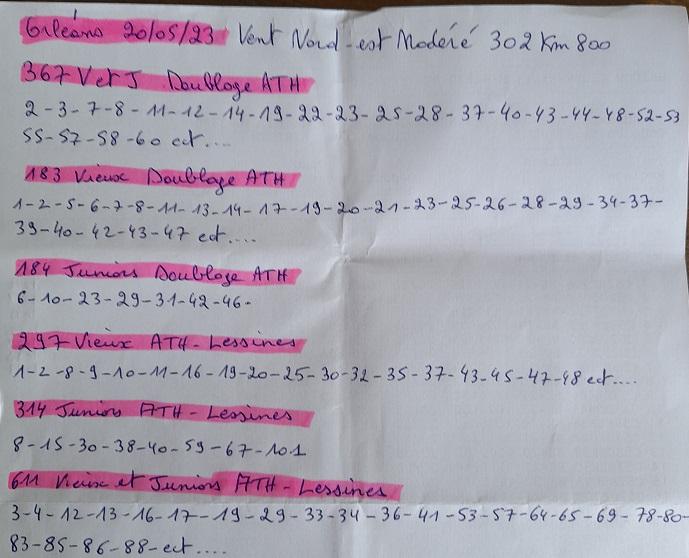 Orléans 20/05/23 Vent Nord-est Modéré 302 Km 800
367 V et J Doublage ATH
2-3-7-8-11-12-14-19-22-23-25-28-37-40-43-44-48-52-53
55-57-58-60 ect....
183 Vieux Doublage ATH
1-2-5-6-7-8-11-13-14-17-19-20-21-23-25-26-28-29-34-37-
39-40-42-43-47 ect....
184 Juniors Doublage ATH
6-10-23-29-31-42-46-
297 Vieux ATH-Lessines
1-2-8-9-10-11-16-19-20-25-30-32-35-37-43-45-47-48 ect....
314 Juniors ATH-Lessines
8-15-30-38-40-59-67-101
611 Vieux et Juniors ATH-Lessines
3-4-12-13-16-17-19-29-33-34-36-41-53-57-64-65-69-78-80-
83-85-86-88-ect....